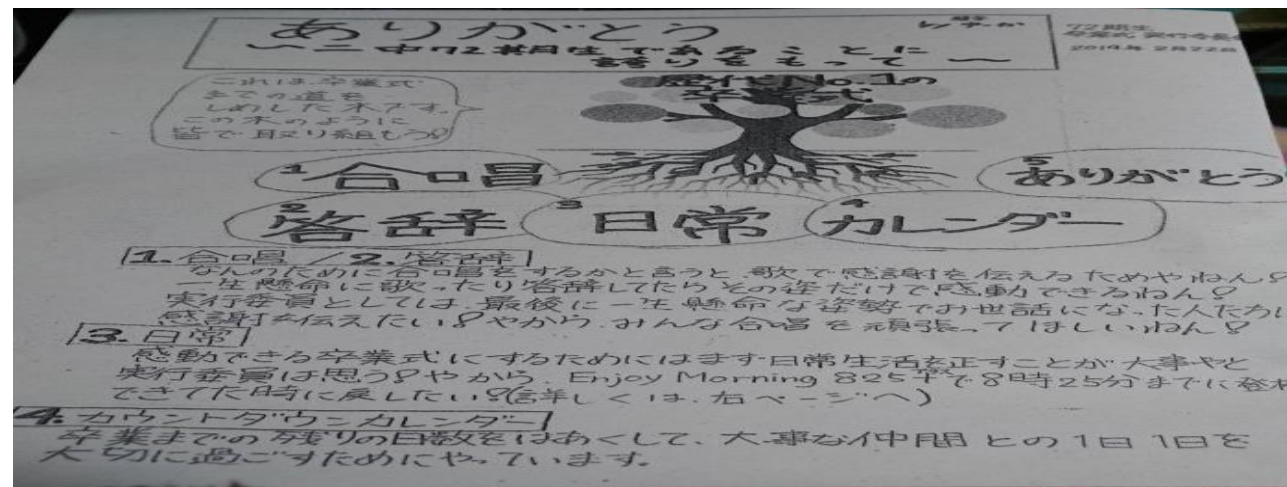 ありがとう
〜二中72期生であることに
誇りをもって〜
72期生
卒業式 実行委員
2019年 2月22日
これは卒業式
までの道を
しめした木です。
この木のように
皆で取り組もう!
歴代No.1の
卒業式
1 合唱
5 ありがとう
2 答辞
3 日常
4 カレンダー
1. 合唱 / 2. 答辞
なんのために合唱をするかと言うと、歌で感謝を伝えるためやねん!
一生懸命に歌ったり答辞してたらその姿だけで感動できるねん!
実行委員としては、最後に一生懸命な姿勢でお世話になった人たちに
感謝を伝えたい!やから、みんな合唱を頑張ってほしいねん!
3. 日常
感動できる卒業式にするためにはまず日常生活を正すことが大事やと
実行委員は思う!やから、Enjoy Morning 825で8時25分までに登校
できてた時に戻したい!(詳しくは、右ページへ)
4. カウントダウンカレンダー
卒業までの残りの日数をはあくして、大事な仲間との1日1日を
大切に過ごすためにやっています。